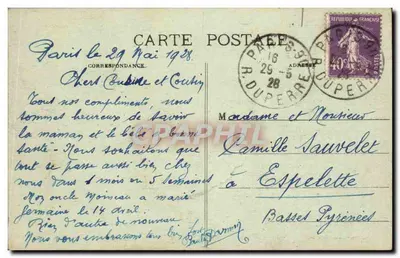 CARTE POSTALE
CORRESPONDANCE
ADRESSE
PARIS
18
29-5
28
R. DUPERRE
REPUBLIQUE FRANÇAISE
40c
Paris le 29 Mai 1928
Chers Cousine et Cousin
Tous nos compliments, nous
sommes heureux de savoir
la maman et le bébé bonne
santé - Nous souhaitons que
tout se passe aussi bien chez
nous dans 1 mois ou 5 semaines
Mon oncle a marié
Germaine le 14 avril.
Rien d'autre de nouveau
Nous vous embrassons bien fort
Madame et Monsieur
Camille Sauvelet
à Espelette
Basses Pyrénées